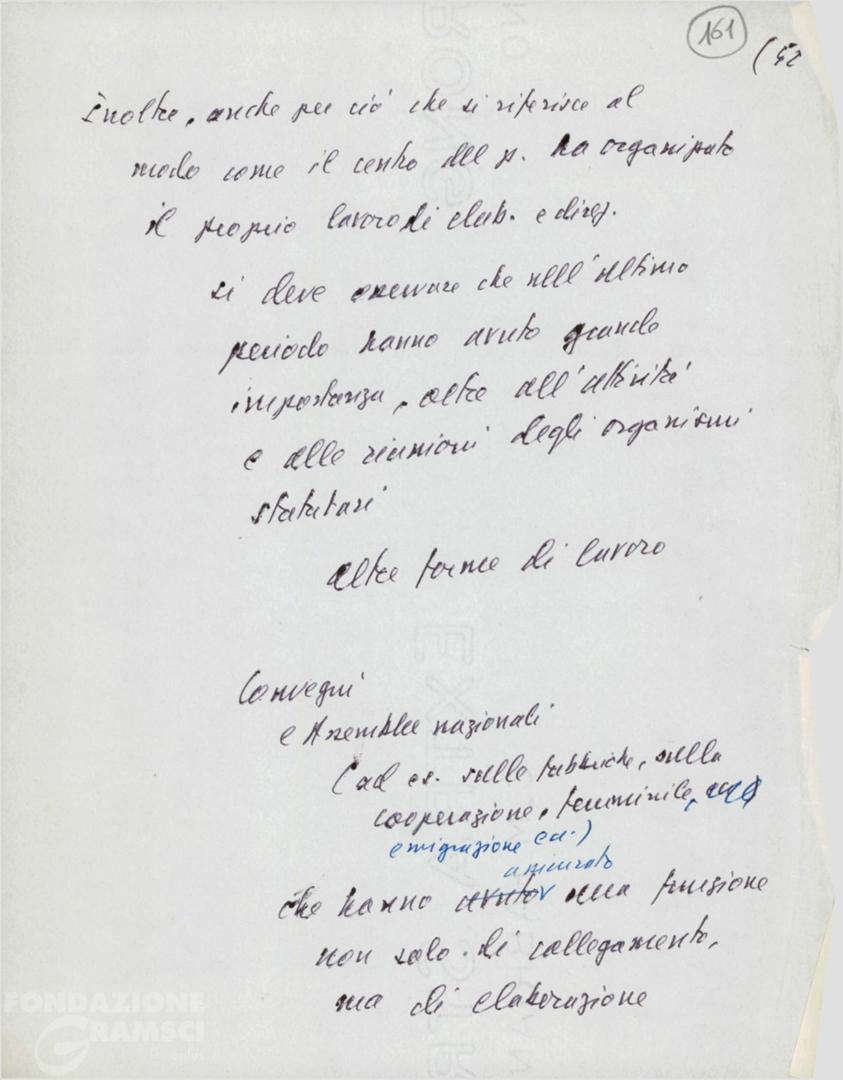 161
(52
Inoltre, anche per ciò che si riferisce al
modo come il centro del p. ha organizzato
il proprio lavoro di elab. e direz.
si deve osservare che nell'ultimo
periodo hanno avuto grande
importanza, oltre all'attività
e alle riunioni degli organismi
statutari
altre forme di lavoro
Convegni
e Assemblee nazionali
(ad es. sulle fabbriche, sulla
cooperazione, femminile,
emigrazione ecc.)
assicurato
che hanno avuto una funzione
non solo di collegamento,
ma di elaborazione
FONDAZIONE
GRAMSCI